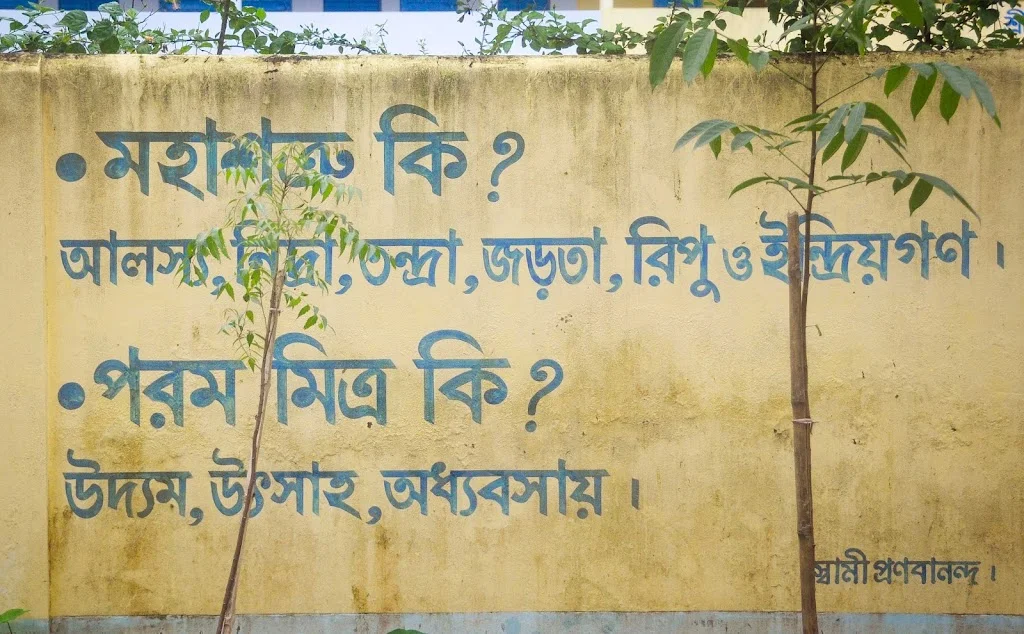 • মহাশত্রু কি ?
আলস্য, নিদ্রা, তন্দ্রা, জড়তা, রিপু ও ইন্দ্রিয়গণ ।
• পরম মিত্র কি ?
উদ্যম, উৎসাহ, অধ্যবসায় ।
স্বামী প্রণবানন্দ ।